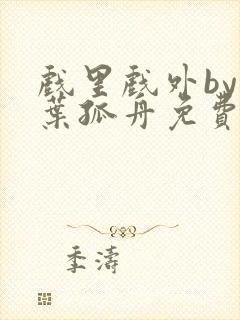 戲里戲外by
葉孤舟免費
季濤